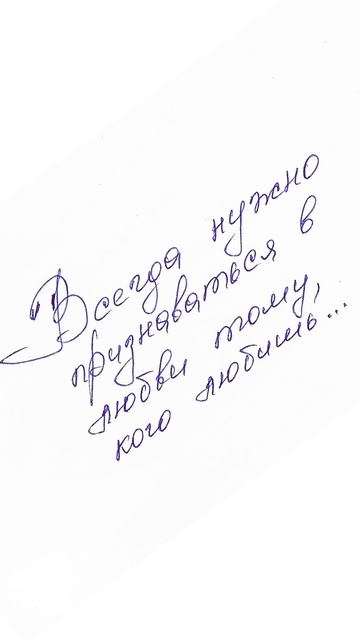 Всегда нужно
признаваться в
любви тому,
кого любишь...